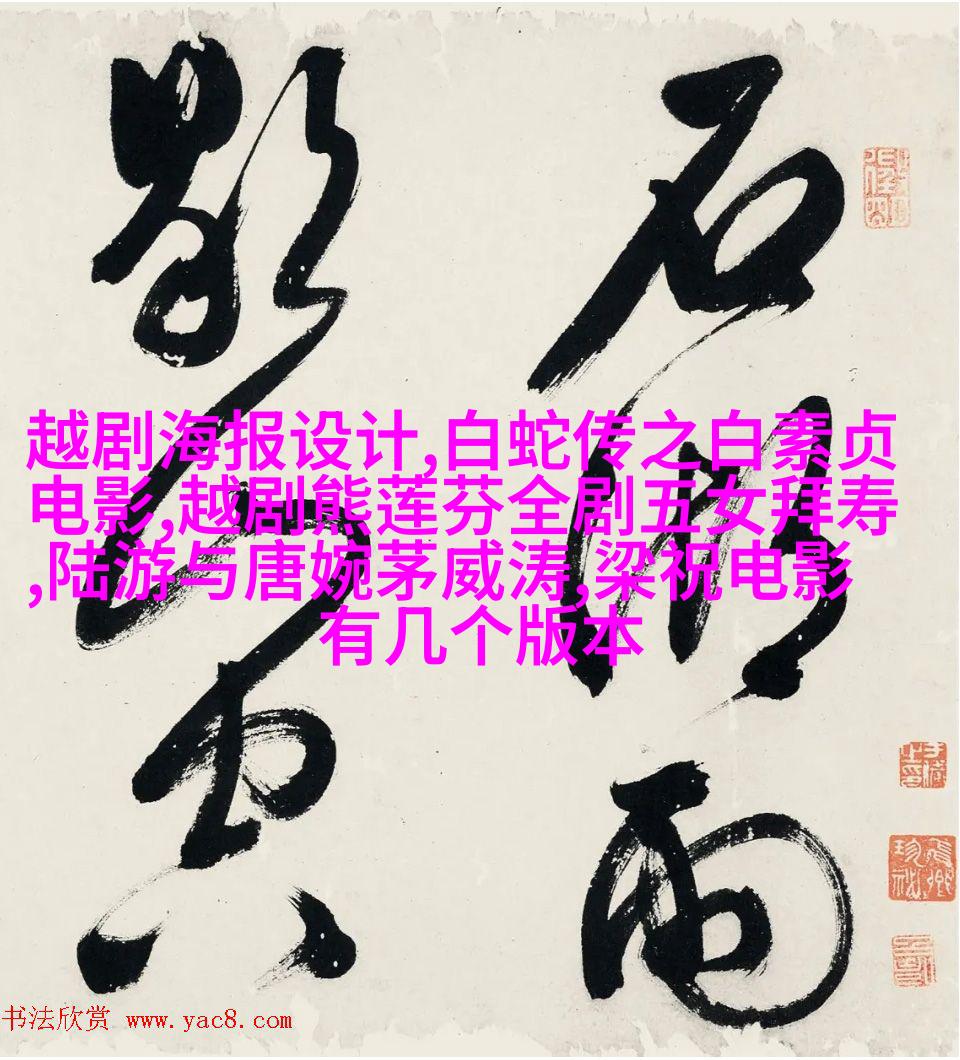 越剧海报设计,白蛇传之白素贞
电影,越剧熊莲芬全剧五女拜寿
,陆游与唐婉茅威涛,梁祝电影
有几个版本
石雨
书法欣赏 www.yac8.com